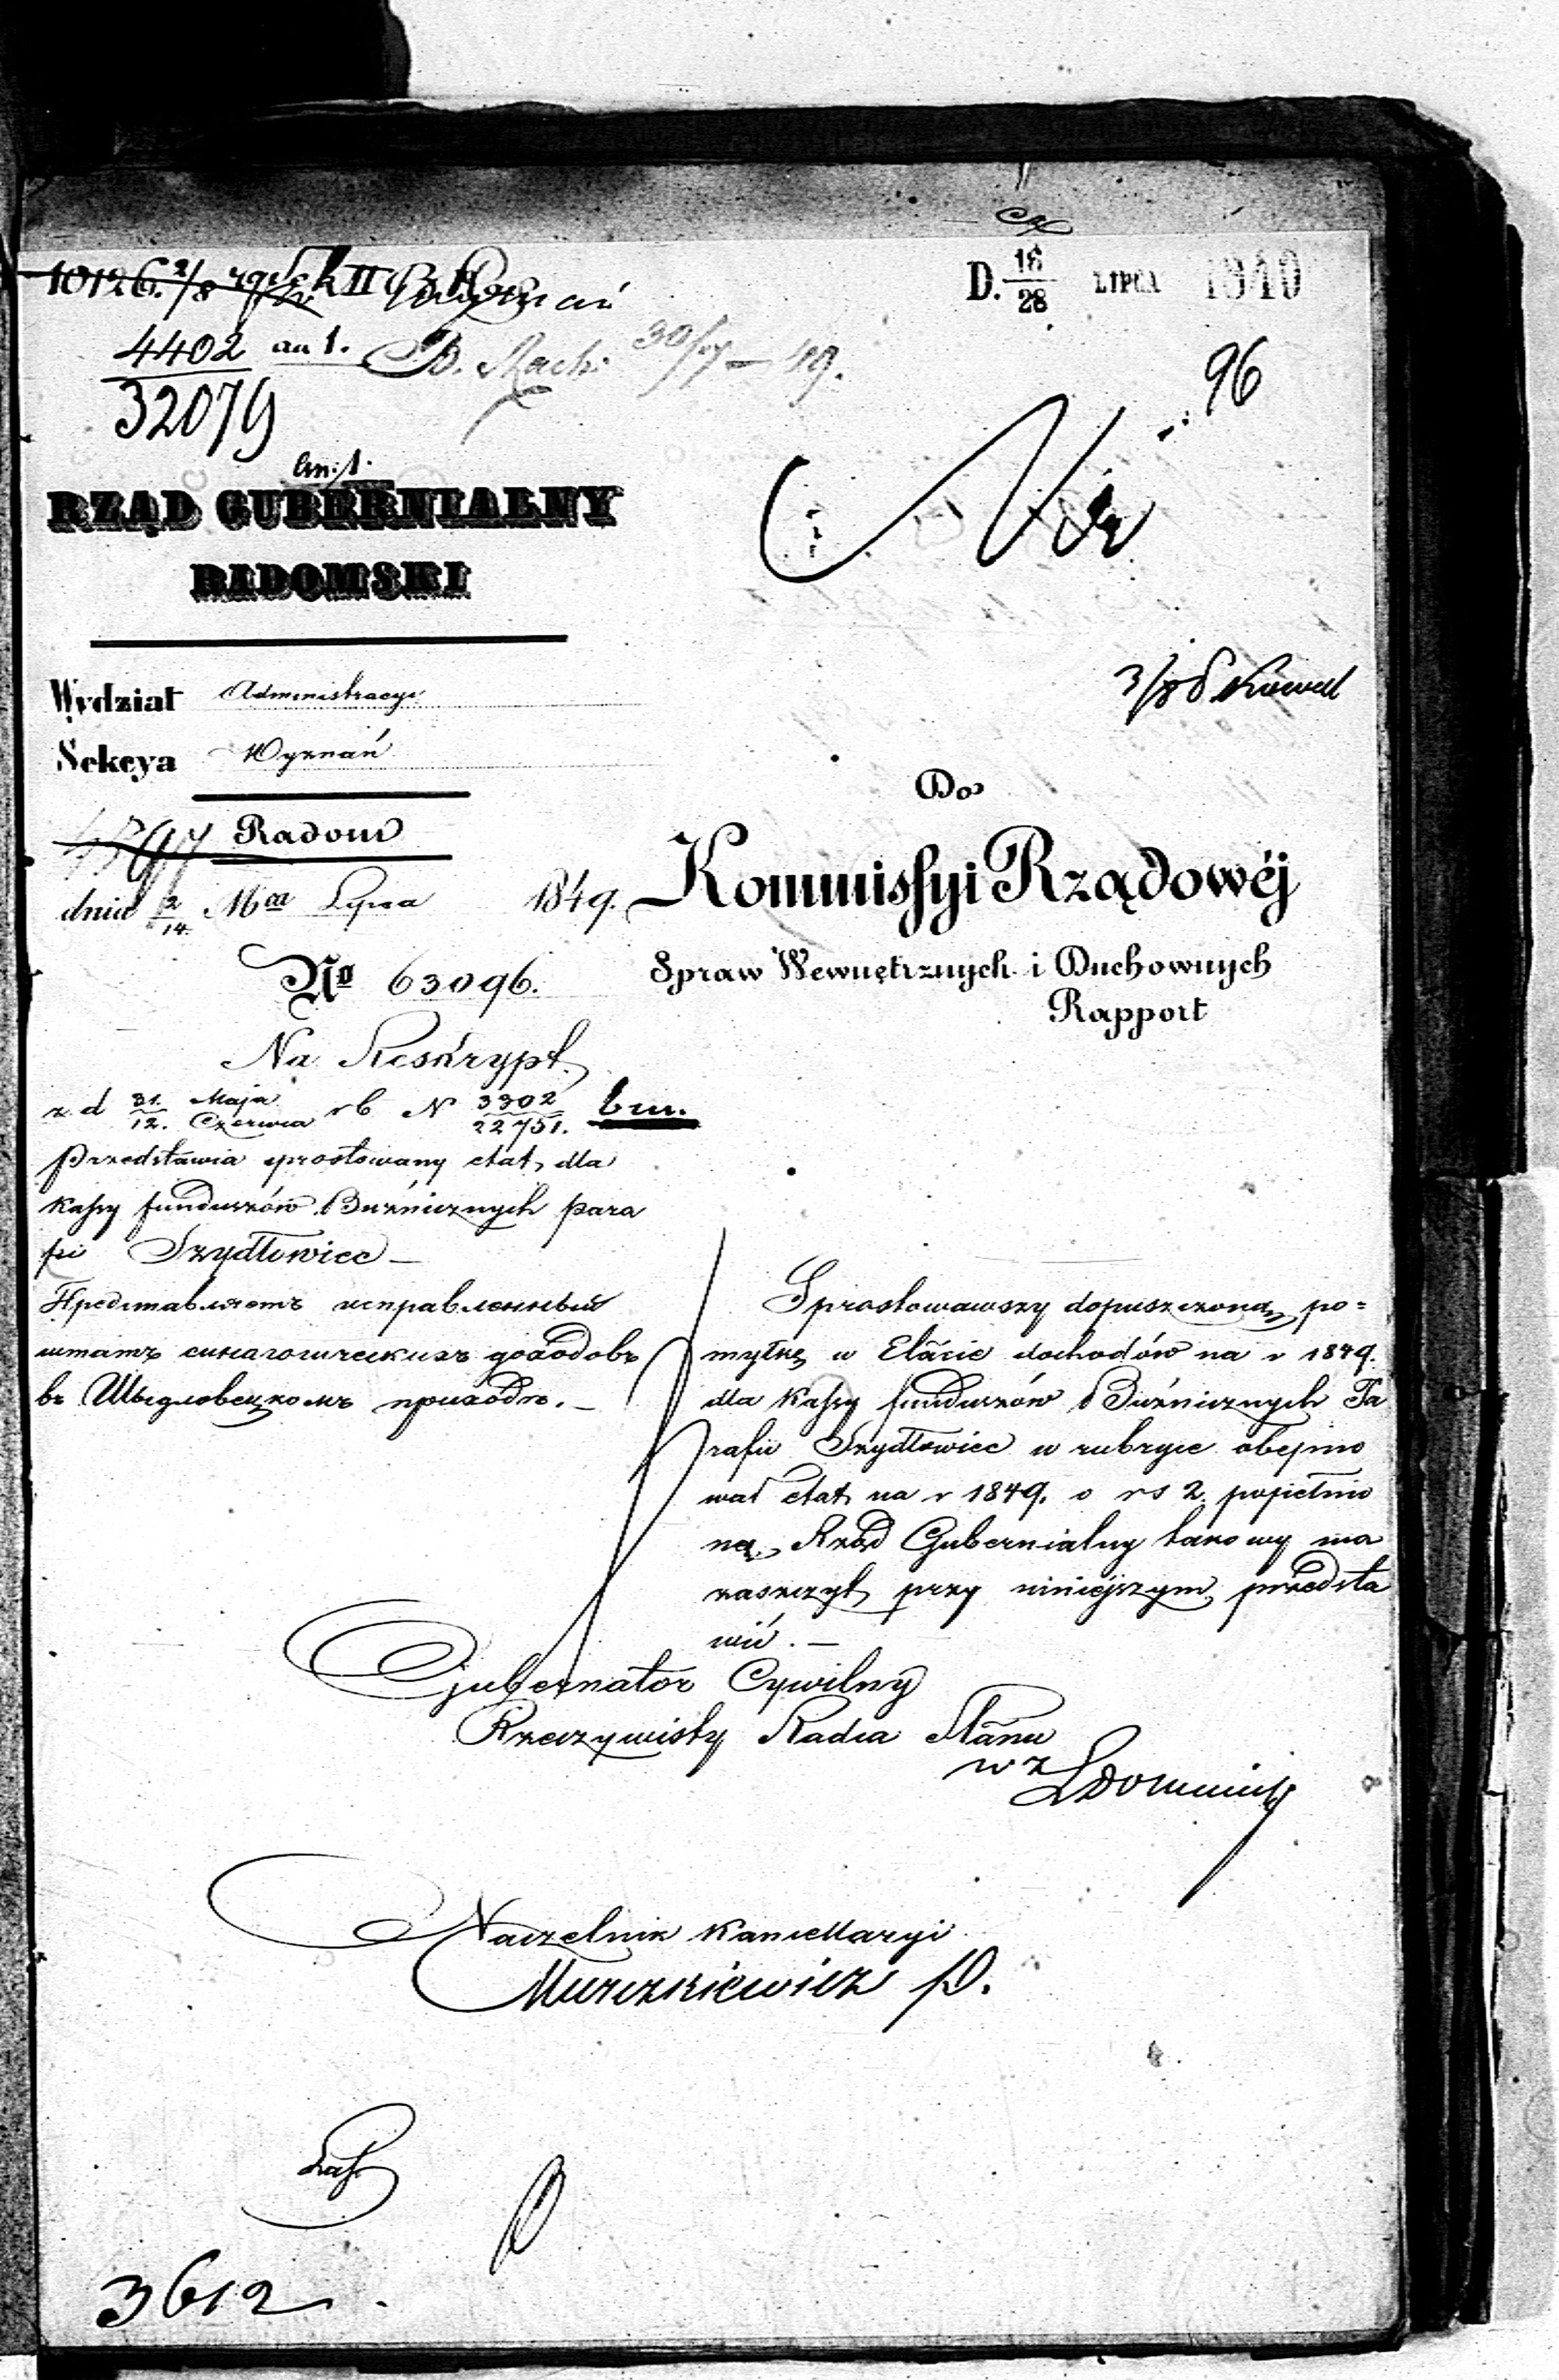 D. 16/28 LIPCA
96
4402 ad 1.
32079
bm. 1.
RZĄD GUBERNIALNY
RADOMSKI
Wydział Administracyi
Sekcya Wyznań
Radom
dnia 2/14 Mca Lipca 1849.
No 63096.
Do
Kommissyi Rządowéj
Spraw Wewnętrznych i Duchownych
Rapport
Na Reskrypt
z d 31. Maja / 12. Czerwca rb N 3302/22751. bm.
Przedstawia sprostowany etat dla
Kassy funduszów Bużnicznych para
fii Szydłowiec —
Представляетъ исправленный
штатъ синагогическихъ доходовъ
въ Шидловецкомъ приходѣ. —
Sprostowawszy dopuszczoną po=
myłkę w Etacie dochodów na r 1849.
dla Kassy funduszów Bużnicznych Pa
rafii Szydłowiec w rubryce obejmo
wał etat na r 1849. o rs 2. popełnio
ną, Rząd Gubernialny takowy ma
zaszczyt przy niniejszym przedsta
wić. —
Gubernator Cywilny
Rzeczywisty Radca Stanu
w z
Naczelnik Kancellaryi
Murczkiewicz p.
3612